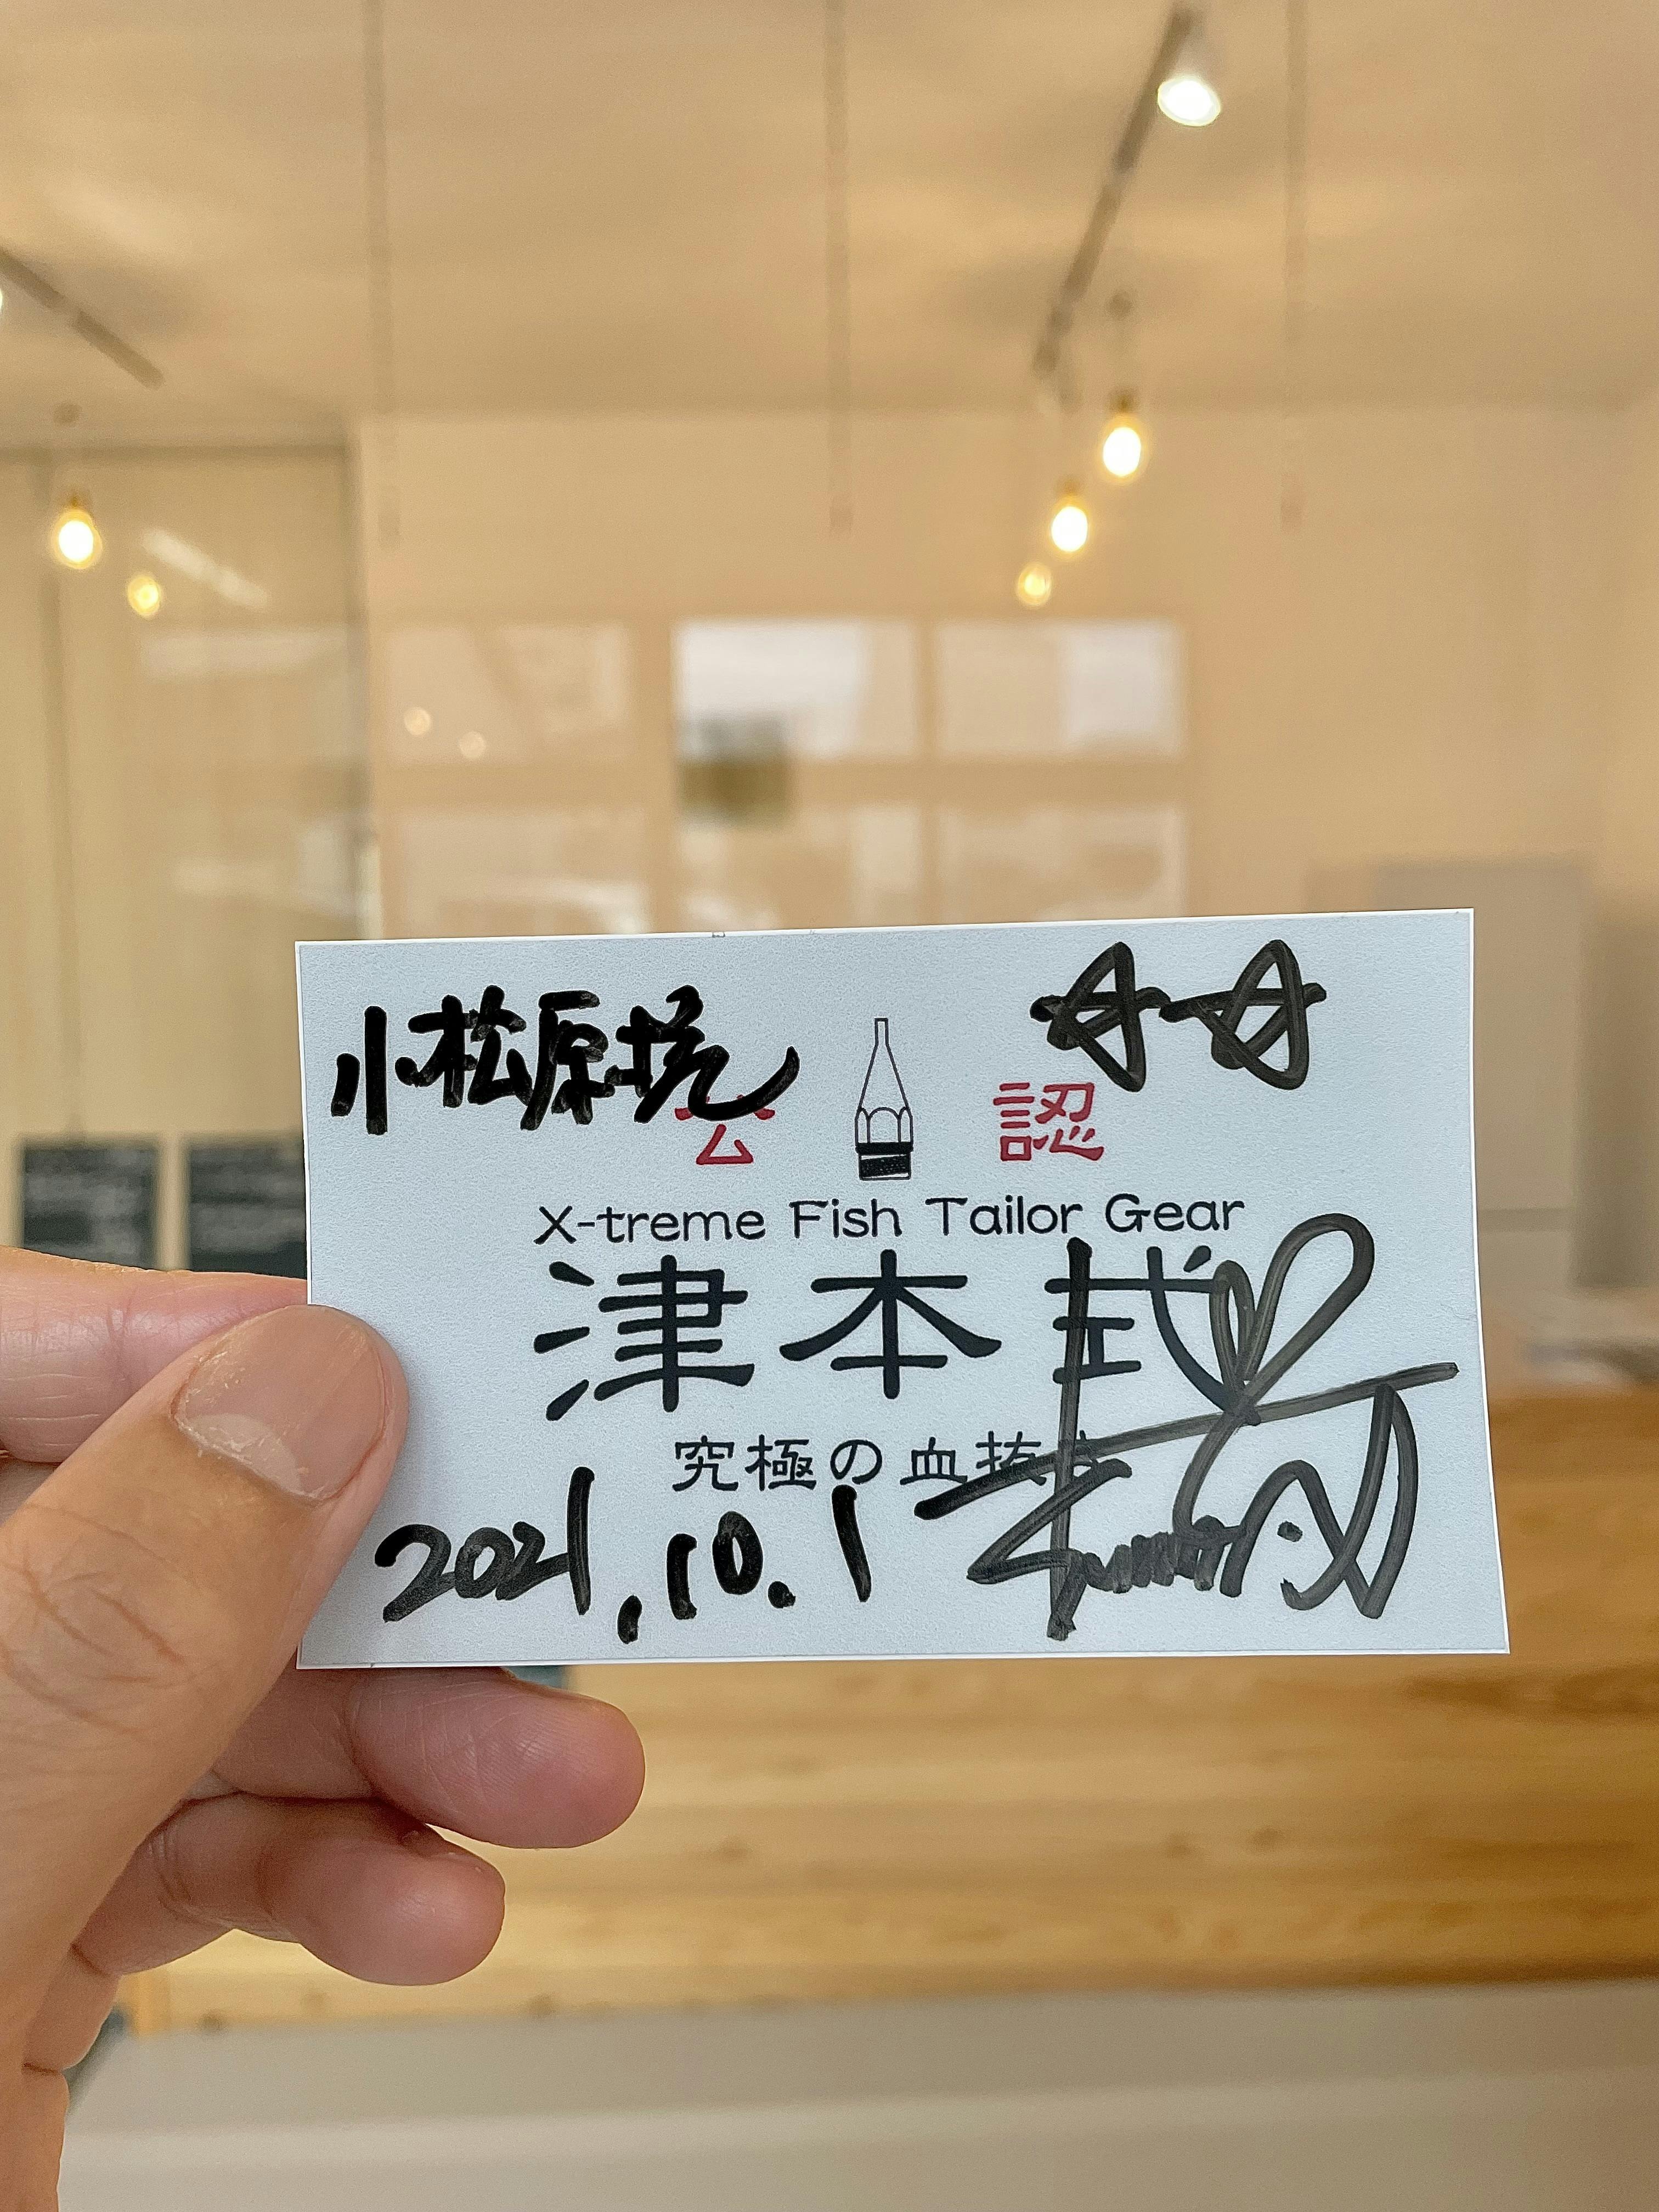 小松原抗
公認
X-treme Fish Tailor Gear
津本式
究極の血抜き
2021.10.1